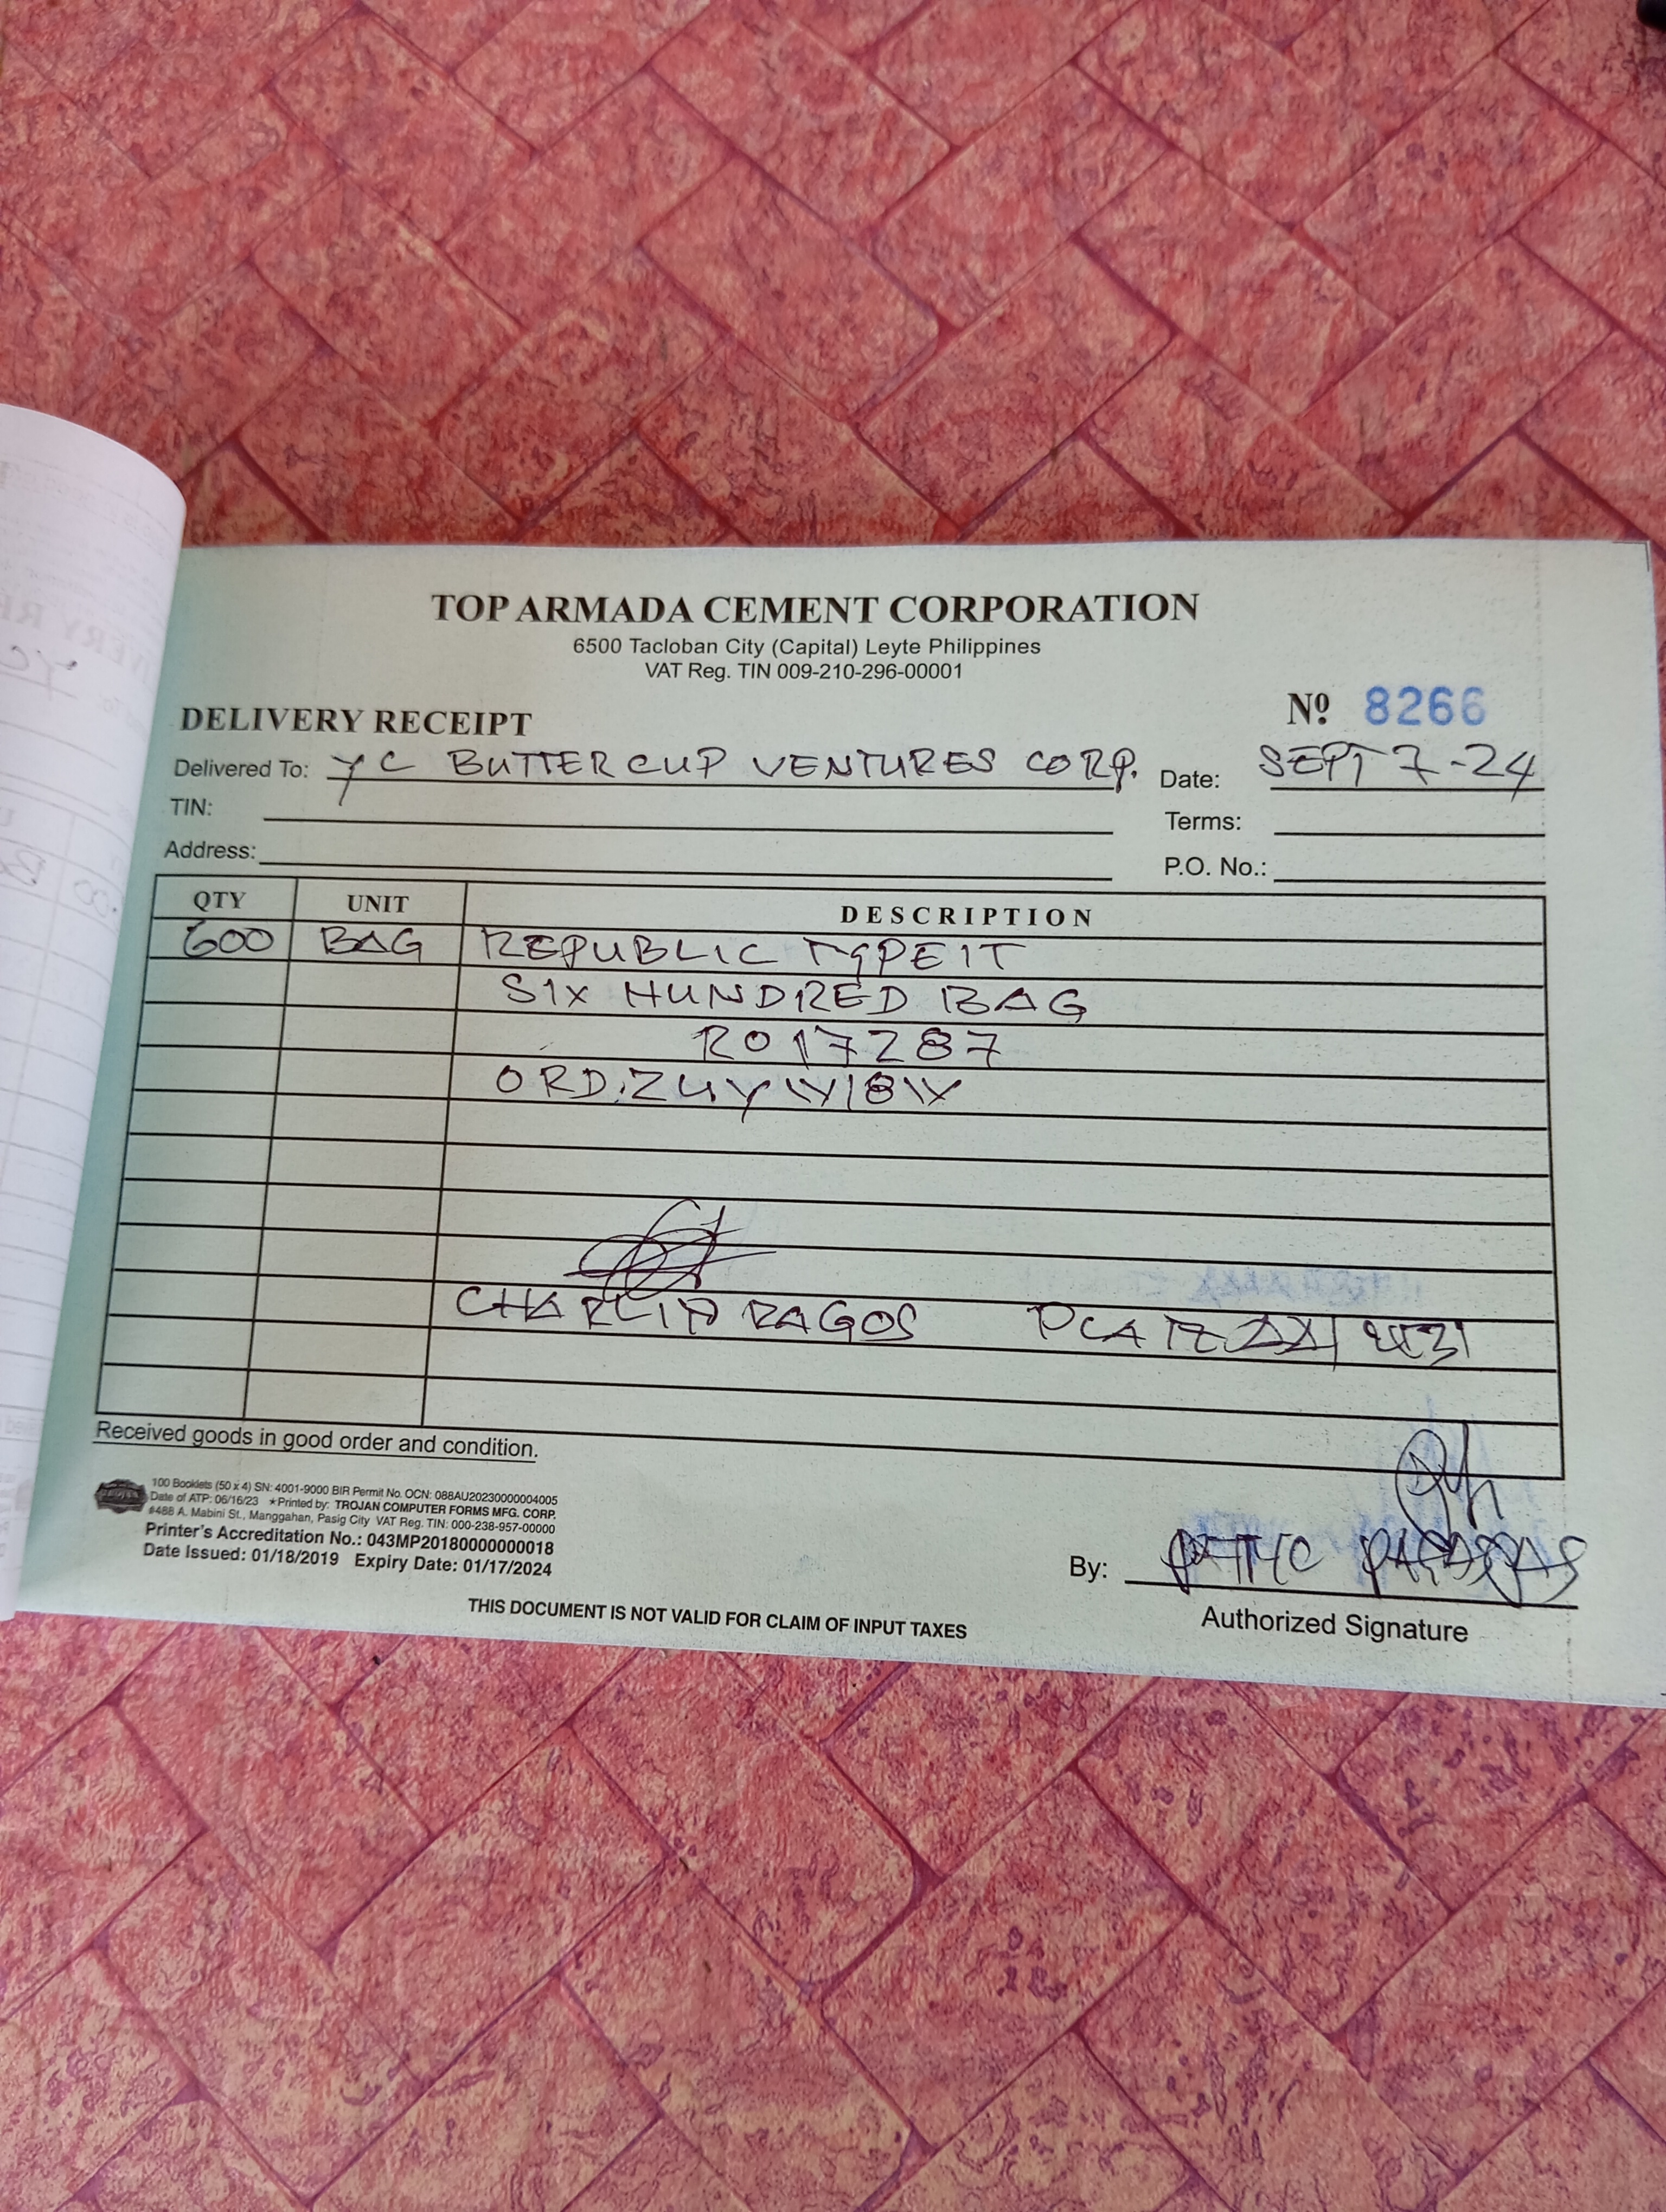 TOP ARMADA CEMENT CORPORATION
6500 Tacloban City (Capital) Leyte Philippines
VAT Reg. TIN 009-210-296-00001
DELIVERY RECEIPT
Nº 8266
Delivered To: YC BUTTERCUP VENTURES CORP.
Date: SEPT 7-24
TIN:
Terms:
Address:
P.O. No.:
QTY UNIT DESCRIPTION
600 BAG REPUBLIC TYPE 1T
SIX HUNDRED BAG
RO 17287
ORD:
RAGOS
Received goods in good order and condition.
100 Booklets (50 x 4) SN: 4001-9000 BIR Permit No. OCN: 088AU20230000004005
Date of ATP: 06/16/23 ★Printed by: TROJAN COMPUTER FORMS MFG. CORP.
#488 A. Mabini St., Manggahan, Pasig City VAT Reg. TIN: 000-238-957-00000
Printer's Accreditation No.: 043MP20180000000018
Date Issued: 01/18/2019 Expiry Date: 01/17/2024
By:
Authorized Signature
THIS DOCUMENT IS NOT VALID FOR CLAIM OF INPUT TAXES